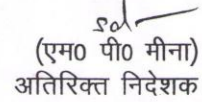 sd/-
(एम0 पी0 मीना)
अतिरिक्त निदेशक